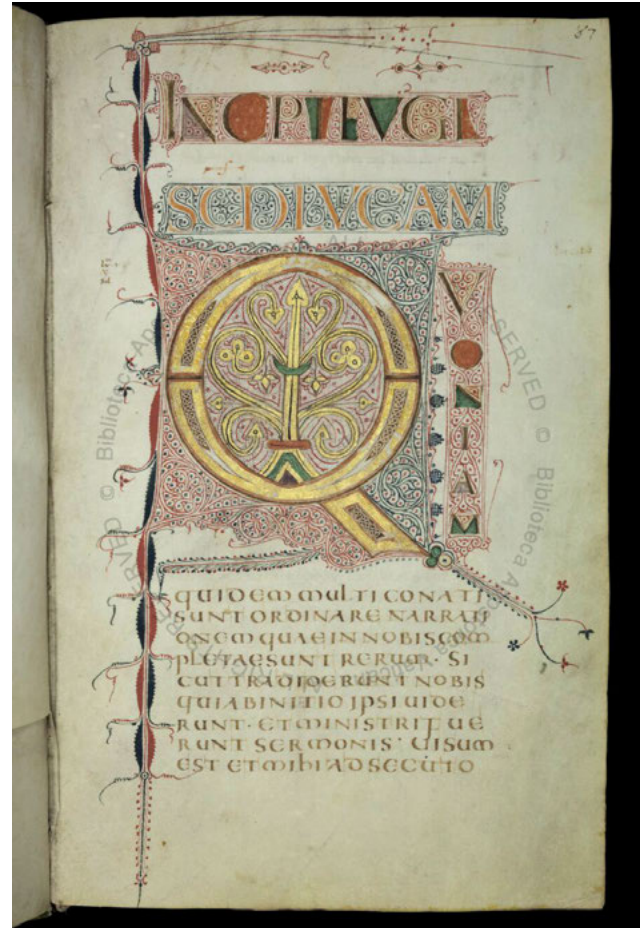 87
INCIPIT EVGL
SCD LVCAM
QVONIAM
QUIDEM MULTI CONATI
SUNT ORDINARE NARRATI
ONEM QUAE IN NOBIS COM
PLETAE SUNT RERUM· SI
CUT TRADIDERUNT NOBIS
QUI AB INITIO IPSI UIDE
RUNT· ET MINISTRI FUE
RUNT SERMONIS· UISUM
EST ET MIHI ADSECUTO